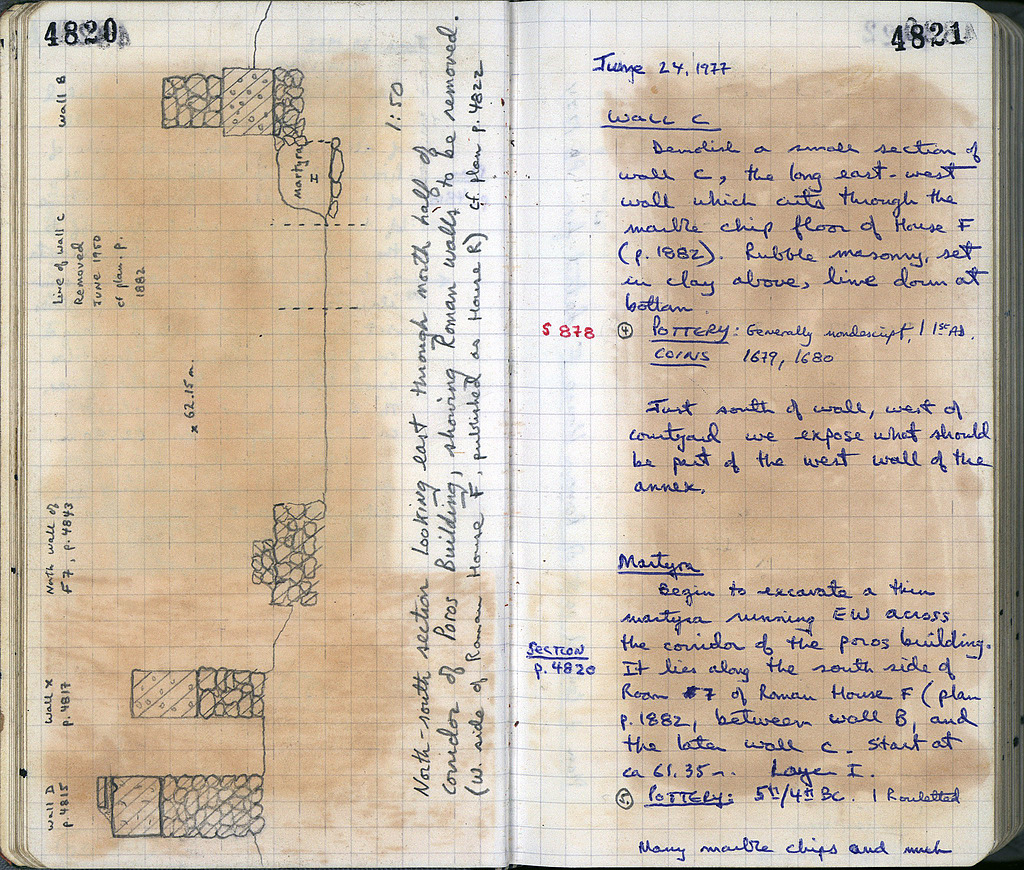 4820
wall B
Line of wall C
Removed
JUNE 1950
cf plan. p.
1882
North wall of
F7, p. 4843
Wall X
p. 4817
wall D
p 4815
martyra
I
x 62.15 m.
1:50
North-south section looking east through north half of
corridor of Poros Building, showing Roman walls to be removed.
(W. side of Roman House F, published as House R) cf. plan p. 4822
4821
June 24, 1977
Wall C
Demolish a small section of
wall C, the long east-west
wall which cuts through the
marble chip floor of House F
(p. 1882). Rubble masonry, set
in clay above, lime down at
bottom.
S 878 ④ POTTERY: Generally nondescript, 1 1st AD.
COINS 1679, 1680
Just south of wall, west of
courtyard we expose what should
be part of the west wall of the
annex.
Martyra
Begin to excavate a thin
martyra running EW across
the corridor of the poros building.
SECTION
p. 4820
It lies along the south side of
Room 7 of Roman House F (plan
p. 1882, between wall B, and
the later wall C. Start at
ca 61.35 m. Layer I.
⑤ POTTERY: 5th/4th BC. 1 Rouletted
Many marble chips and much